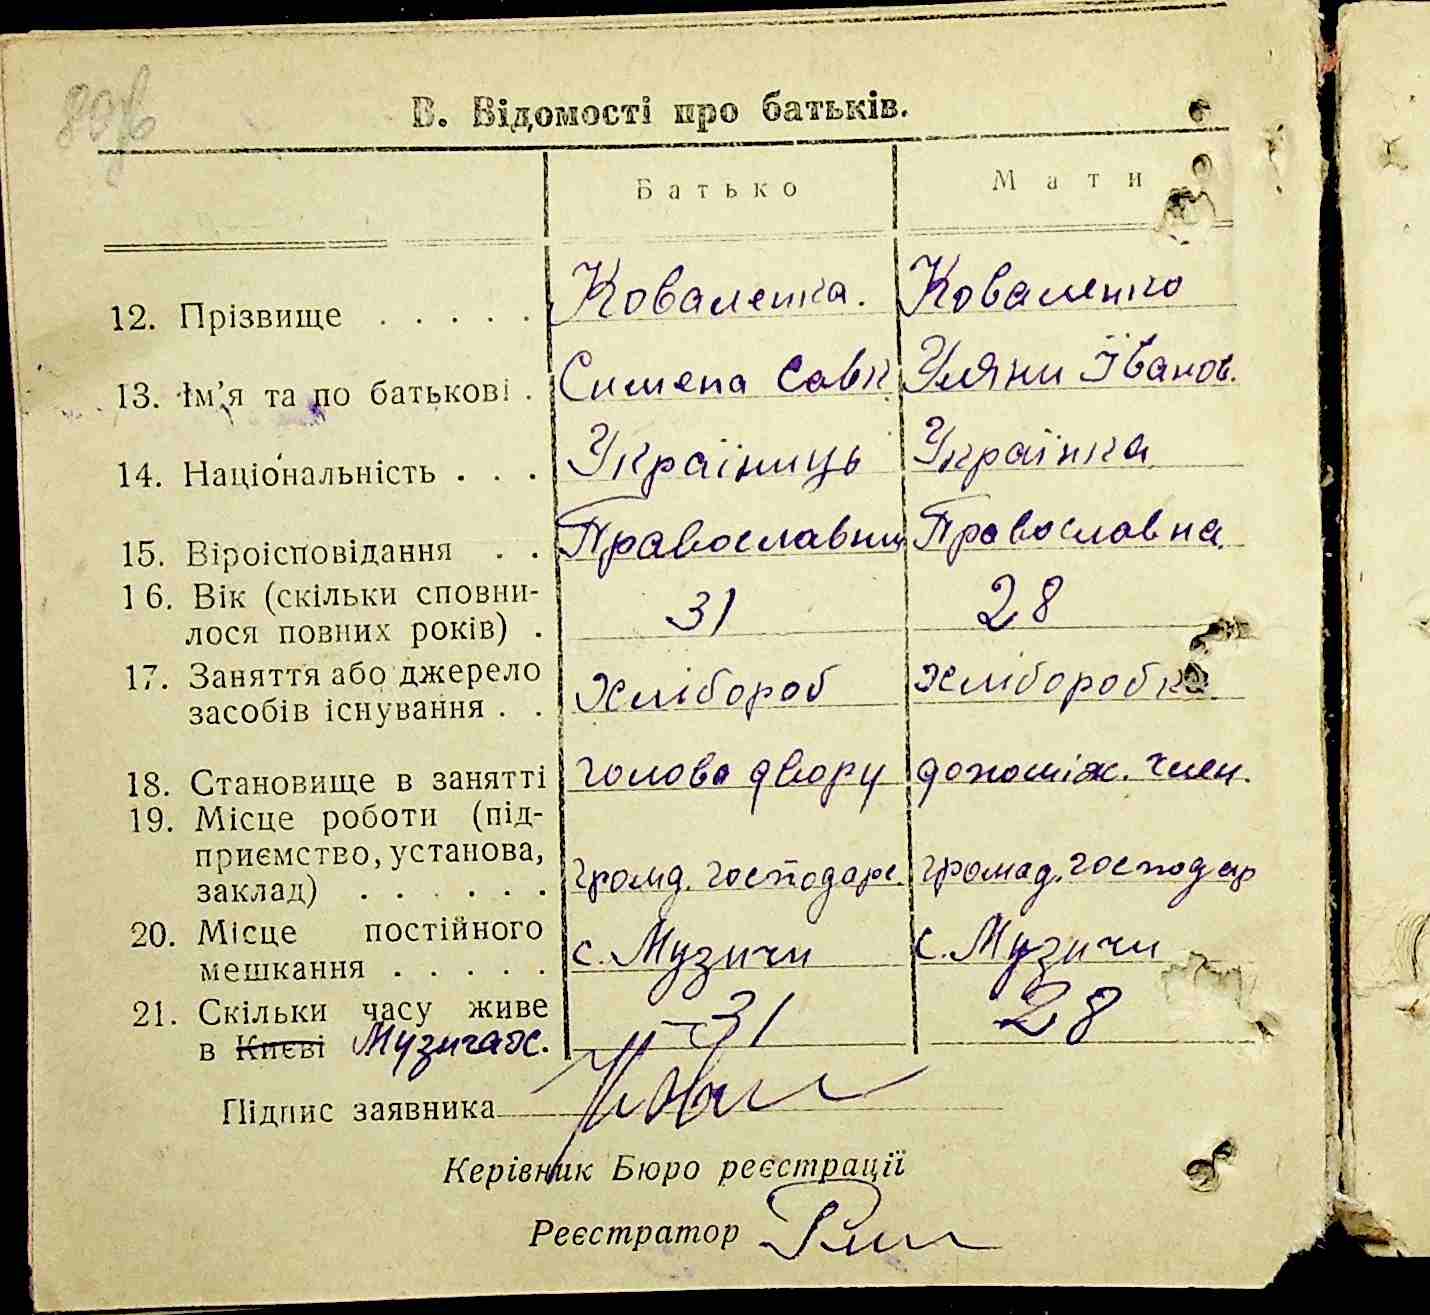 80зв
В. Відомості про батьків.
Батько Мати
12. Прізвище . . . . . Коваленка. Коваленко
13. Ім'я та по батькові . Симена Савк Уляни Їванов.
14. Національність . . . Україниць Українка
15. Віроісповідання . . Православниц Православна
16. Вік (скільки сповни-
лося повних років) . 31 28
17. Заняття або джерело
засобів існування . . Хлібороб Хліборобка
18. Становище в занятті голова двору допоміж. член.
19. Місце роботи (під-
приємство, установа,
заклад) . . . . . . громд. господарс. громад. господар
20. Місце постійного
мешкання . . . . . с. Музичи с. Музичи
21. Скільки часу живе
в Києві Музичах. 31 28
Підпис заявника
Керівник Бюро реєстрації
Реєстратор